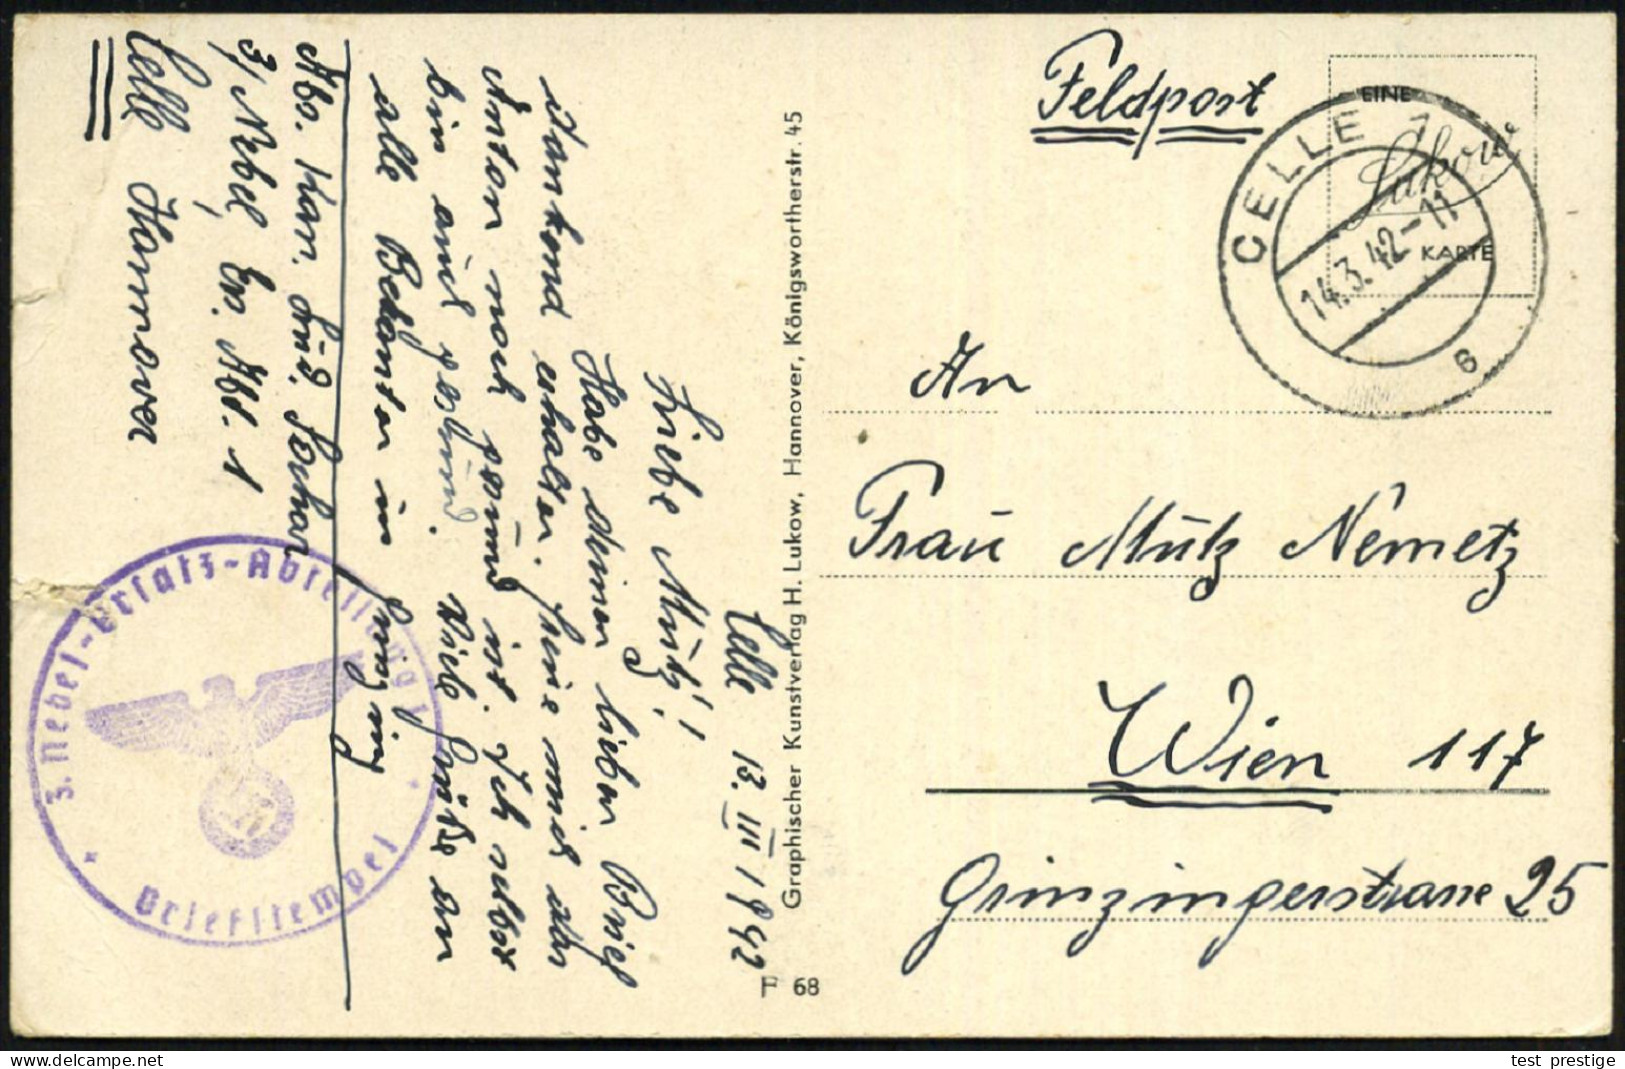 Feldpost
EINE
Lukow
KARTE
CELLE 1
14.3.42-11
An
Frau Mutz Nemetz
Wien 117
Grinzingerstrasse 25
Celle 13. III 1942
Liebe Mutz!
Habe deinen lieben Brief
dankend erhalten. freue mich das
Anton noch gesund ist. Ich selbst
bin auch gesund. Viele Grüße an
alle Bekannten in
Abs. Kan. Lud.
3/ Nebel Ers. Abt. 1
Celle Hannover
3. Nebel-Ersatz-Abteilung 1
Briefstempel
Graphischer Kunstverlag H. Lukow, Hannover, Königswortherstr. 45
F 68
test_prestige